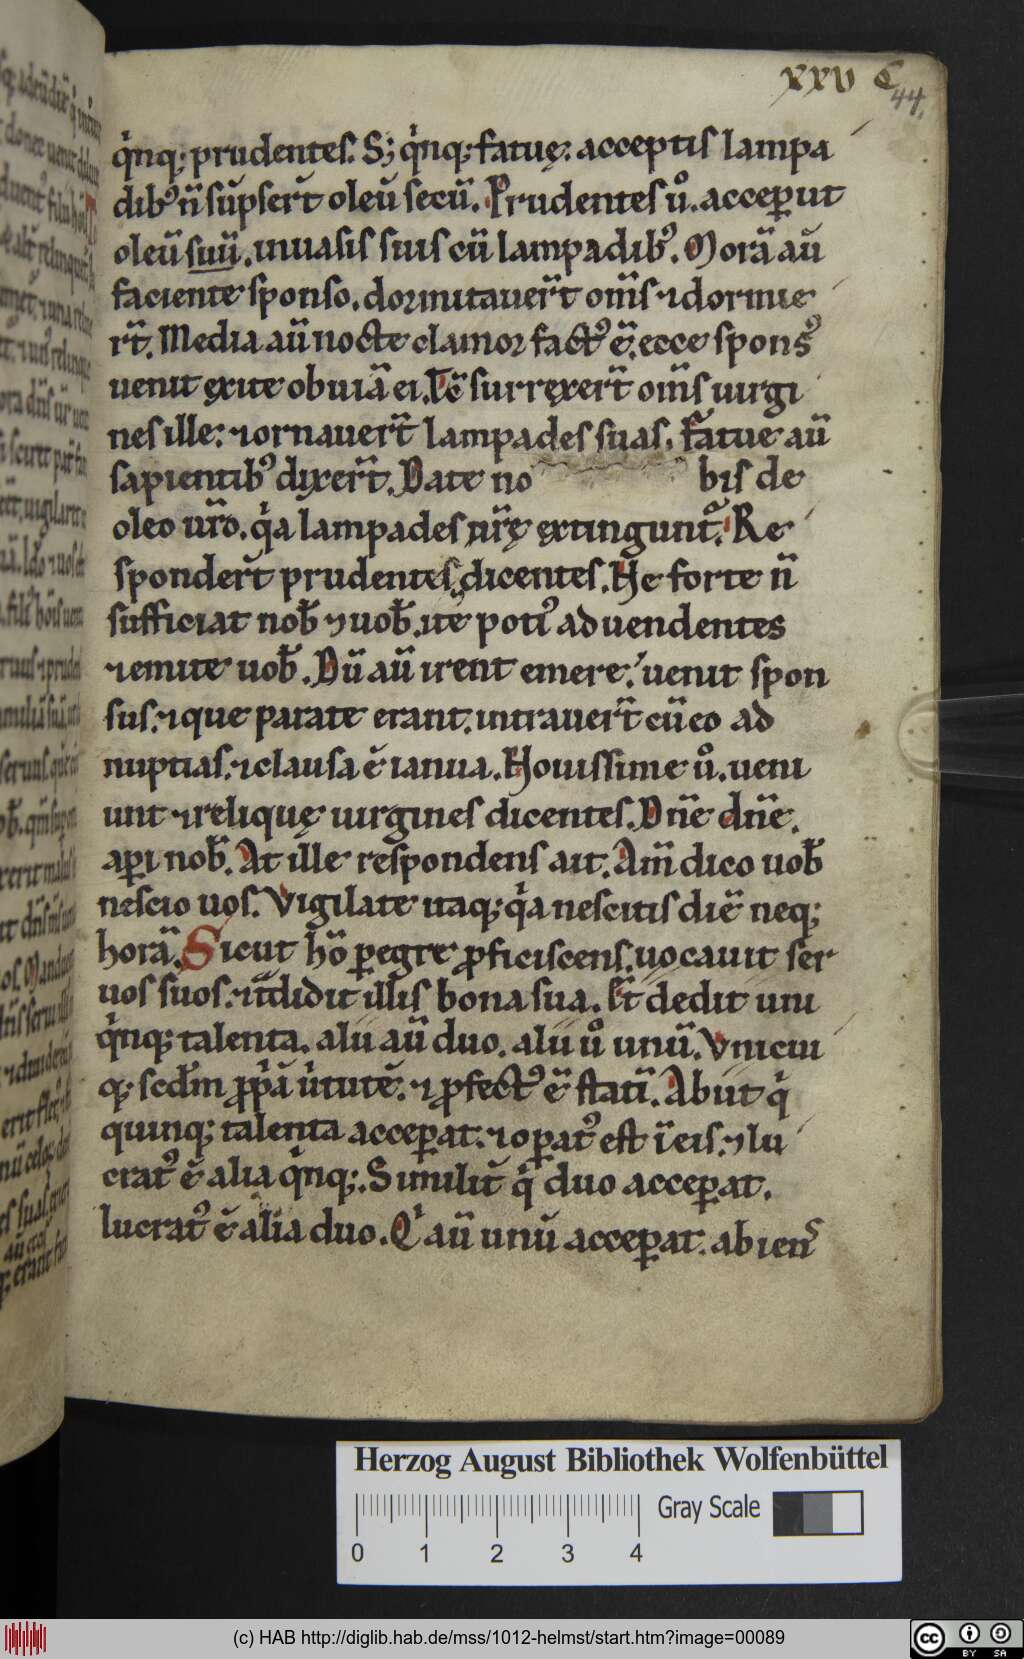 xxv C
44.
q̇nq; prudentes. S; q̇nq; fatuę. acceptis lampa
dib⁹ n̄ sūpser̄t oleū secū. Prudentes u̇. acceperut
oleū suū. inuasis suis cū lampadib⁹. Morā aū
faciente sponso. dormitauer̄t om̄s ⁊dormie
rt̄. Media aū nocte clamor fact⁹ ē. ecce spons⁹
uenit ęxite obuiā ei. Tc̄ surręxer̄t om̄s uirgi
nes ille. ⁊ornauer̄t lampades suas. fatue aū
sapientib⁹ dixer̄t. Date no bis de
oleo ur̄o. q̇a lampades nr̄ę ęxtingunt᷒. Re
sponder̄t prudentes dicentes. Ne forte n̄
sufficiat nob̄ ⁊uob̄. ite poti⁹ aduendentes
⁊emite uob̄. Dū aū irent emere. uenit spon
sus. ⁊que parate erant. intrauer̄t cū eo ad
nuptias. ⁊clausa ē ianua. Nouissime u̇. ueni
unt ⁊reliquę uirgines dicentes. Dn̄e dn̄e.
aꝑi nob̄. At ille respondens ait. Am̄ dico uob̄
nescio uos. Vigilate itaq; q̇a nescitis diē neq;
horā. Sicut hō ꝑegre ꝓficiscens. uocauit ser
uos suos. ⁊tͣdidit illis bona sua. Et dedit uni
q̇nq; talenta. alii aū duo. alii u̇ unū. Vnicui
q; scd̄m ꝓpͥā uͥtutē. ⁊ ꝓfect⁹ ē statī. Abiit q̇
quinq; talenta acceꝑat. ⁊oꝑat⁹ est ī eis. ⁊lu
crat⁹ ē alia q̇nq;. Similit̄ q̇ duo acceꝑat.
lucrat⁹ ē alia duo. Q̇ aū unū acceꝑat. abiens
Herzog August Bibliothek Wolfenbüttel
Gray Scale
0 1 2 3 4
(c) HAB http://diglib.hab.de/mss/1012-helmst/start.htm?image=00089
cc BY SA